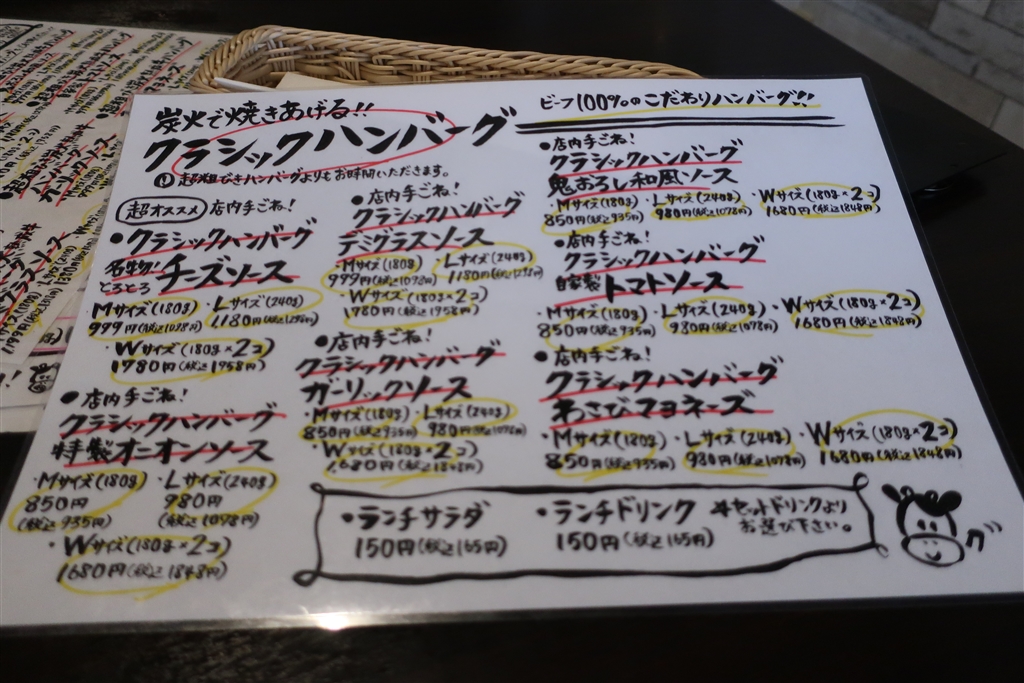 炭火で焼きあげる!!
クラシックハンバーグ
ビーフ100%のこだわりハンバーグ!!
超粗びきハンバーグよりもお時間いただきます。
超オススメ 店内手ごね!
・クラシックハンバーグ
名物!とろとろ チーズソース
・Mサイズ(180g) ・Lサイズ(240g)
999円(税込1098円) 1180円(税込1298円)
・Wサイズ(180g×2コ)
1780円(税込1958円)
・店内手ごね!
クラシックハンバーグ
特製オニオンソース
・Mサイズ(180g) ・Lサイズ(240g)
850円 980円
(税込935円) (税込1078円)
・Wサイズ(180g×2コ)
1680円(税込1848円)
・店内手ごね!
クラシックハンバーグ
デミグラスソース
・Mサイズ(180g) ・Lサイズ(240g)
999円(税込1098円) 1180円(税込1298円)
・Wサイズ(180g×2コ)
1780円(税込1958円)
・店内手ごね!
クラシックハンバーグ
ガーリックソース
・Mサイズ(180g) ・Lサイズ(240g)
850円(税込935円) 980円(税込1078円)
・Wサイズ(180g×2コ)
1680円(税込1848円)
・店内手ごね!
クラシックハンバーグ
鬼おろし和風ソース
・Mサイズ(180g) ・Lサイズ(240g) ・Wサイズ(180g×2コ)
850円(税込935円) 980円(税込1078円) 1680円(税込1848円)
・店内手ごね!
クラシックハンバーグ
自家製トマトソース
・Mサイズ(180g) ・Lサイズ(240g) ・Wサイズ(180g×2コ)
850円(税込935円) 980円(税込1078円) 1680円(税込1848円)
・店内手ごね!
クラシックハンバーグ
わさびマヨネーズ
・Mサイズ(180g) ・Lサイズ(240g) ・Wサイズ(180g×2コ)
850円(税込935円) 980円(税込1078円) 1680円(税込1848円)
・ランチサラダ ・ランチドリンク ※セットドリンクより
お選び下さい。
150円(税込165円) 150円(税込165円)